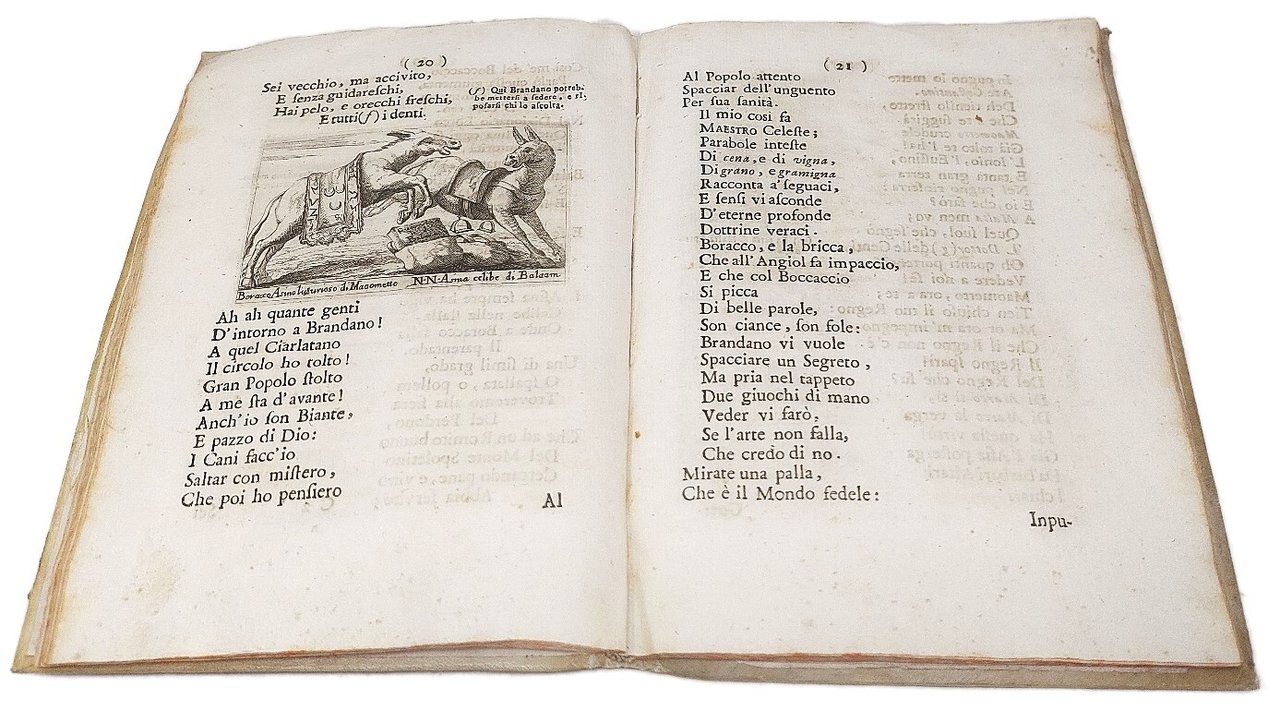 ( 20 )
Sei vecchio, ma accivito,
E senza guidareschi,
Hai pelo, e orecchi freschi,
E tutti (f) i denti.
(f) Quì Brandano potreb-
be mettersi a sedere, e ri-
posarsi chi lo ascolta.
Boracco Asino lusurioso di Maometto N-N-Asina celibe di Balaam
Ah ah quante genti
D'intorno a Brandano!
A quel Ciarlatano
Il circolo ho tolto!
Gran Popolo stolto
A me sta d'avante!
Anch'io son Biante,
E pazzo di Dio:
I Cani facc'io
Saltar con mistero,
Che poi ho pensiero
Al
( 21 )
Al Popolo attento
Spacciar dell'unguento
Per sua sanità.
Il mio così fa
MAESTRO Celeste;
Parabole inteste
Di cena, e di vigna,
Di grano, e gramigna
Racconta a' seguaci,
E sensi vi asconde
D'eterne profonde
Dottrine veraci.
Boracco, e la bricca,
Che all'Angiol fa impaccio,
E che col Boccaccio
Si picca
Di belle parole,
Son ciance, son fole:
Brandano vi vuole
Spacciare un Segreto,
Ma pria nel tappeto
Due giuochi di mano
Veder vi farò,
Se l'arte non falla,
Che credo di no.
Mirate una palla,
Che è il Mondo fedele:
Inpu-